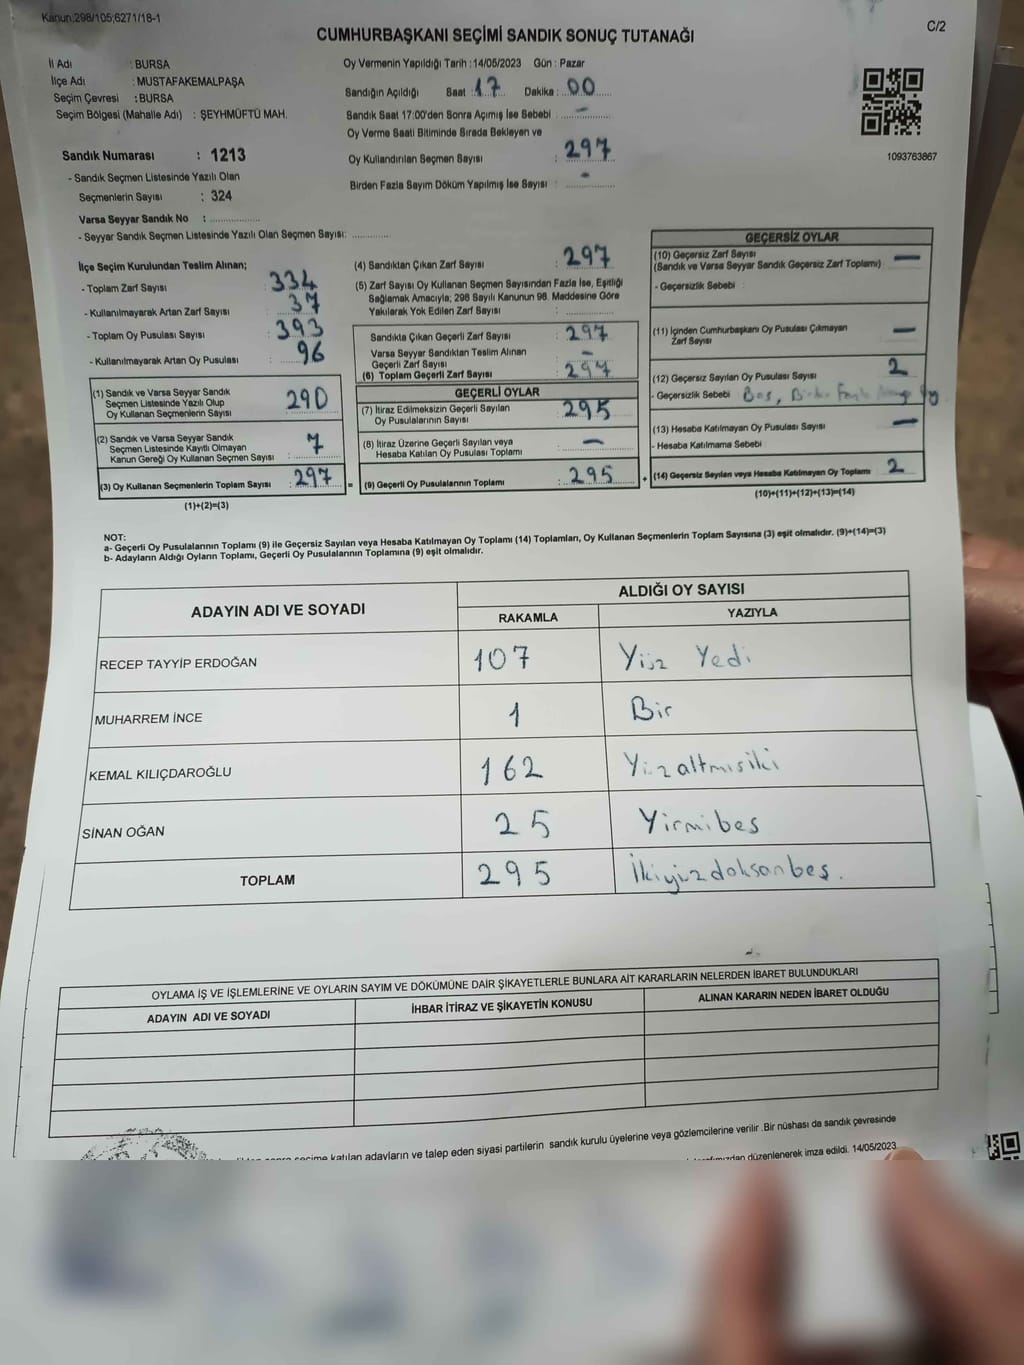 Kanun:298/105;6271/18-1
CUMHURBAŞKANI SEÇİMİ SANDIK SONUÇ TUTANAĞI
C/2
İl Adı : BURSA
İlçe Adı : MUSTAFAKEMALPAŞA
Seçim Çevresi : BURSA
Seçim Bölgesi (Mahalle Adı) : ŞEYHMÜFTÜ MAH.
Sandık Numarası : 1213
- Sandık Seçmen Listesinde Yazılı Olan
Seçmenlerin Sayısı : 324
Varsa Seyyar Sandık No : ................
- Seyyar Sandık Seçmen Listesinde Yazılı Olan Seçmen Sayısı: ............
Oy Vermenin Yapıldığı Tarih :14/05/2023 Gün : Pazar
Sandığın Açıldığı Saat : 17 Dakika : 00
Sandık Saat 17:00'den Sonra Açımış İse Sebebi : -
Oy Verme Saati Bitiminde Sırada Bekleyen ve
Oy Kullandırılan Seçmen Sayısı : 297
Birden Fazla Sayım Döküm Yapılmış İse Sayısı : -
1093763867
İlçe Seçim Kurulundan Teslim Alınan;
- Toplam Zarf Sayısı : 334
- Kullanılmayarak Artan Zarf Sayısı : 37
- Toplam Oy Pusulası Sayısı : 393
- Kullanılmayarak Artan Oy Pusulası : 96
(1) Sandık ve Varsa Seyyar Sandık
Seçmen Listesinde Yazılı Olup
Oy Kullanan Seçmenlerin Sayısı : 290
(2) Sandık ve Varsa Seyyar Sandık
Seçmen Listesinde Kayıtlı Olmayan
Kanun Gereği Oy Kullanan Seçmen Sayısı : 7
(3) Oy Kullanan Seçmenlerin Toplam Sayısı : 297
(1)+(2)=(3)
(4) Sandıktan Çıkan Zarf Sayısı : 297
(5) Zarf Sayısı Oy Kullanan Seçmen Sayısından Fazla İse, Eşitliği
Sağlamak Amacıyla; 298 Sayılı Kanunun 98. Maddesine Göre
Yakılarak Yok Edilen Zarf Sayısı : ............
Sandıkta Çıkan Geçerli Zarf Sayısı : 297
Varsa Seyyar Sandıktan Teslim Alınan
Geçerli Zarf Sayısı : -
(6) Toplam Geçerli Zarf Sayısı : 297
GEÇERLİ OYLAR
(7) İtiraz Edilmeksizin Geçerli Sayılan
Oy Pusulalarının Sayısı : 295
(8) İtiraz Üzerine Geçerli Sayılan veya
Hesaba Katılan Oy Pusulası Toplamı : -
= (9) Geçerli Oy Pusulalarının Toplamı : 295
GEÇERSİZ OYLAR
(10) Geçersiz Zarf Sayısı
(Sandık ve Varsa Seyyar Sandık Geçersiz Zarf Toplamı) : -
- Geçersizlik Sebebi :
(11) İçinden Cumhurbaşkanı Oy Pusulası Çıkmayan
Zarf Sayısı : -
(12) Geçersiz Sayılan Oy Pusulası Sayısı : 2
- Geçersizlik Sebebi : Boş, Birden Fazla Oy
(13) Hesaba Katılmayan Oy Pusulası Sayısı : -
- Hesaba Katılmama Sebebi :
+ (14) Geçersiz Sayılan veya Hesaba Katılmayan Oy Toplamı : 2
(10)+(11)+(12)+(13)=(14)
NOT:
a- Geçerli Oy Pusulalarının Toplamı (9) ile Geçersiz Sayılan veya Hesaba Katılmayan Oy Toplamı (14) Toplamları, Oy Kullanan Seçmenlerin Toplam Sayısına (3) eşit olmalıdır. (9)+(14)=(3)
b- Adayların Aldığı Oyların Toplamı, Geçerli Oy Pusulalarının Toplamına (9) eşit olmalıdır.
ADAYIN ADI VE SOYADI
ALDIĞI OY SAYISI
RAKAMLA YAZIYLA
RECEP TAYYİP ERDOĞAN 107 Yüz Yedi
MUHARREM İNCE 1 Bir
KEMAL KILIÇDAROĞLU 162 Yüzaltmışiki
SİNAN OĞAN 25 Yirmibeş
TOPLAM 295 İkiyüzdoksanbeş.
OYLAMA İŞ VE İŞLEMLERİNE VE OYLARIN SAYIM VE DÖKÜMÜNE DAİR ŞİKAYETLERLE BUNLARA AİT KARARLARIN NELERDEN İBARET BULUNDUKLARI
ADAYIN ADI VE SOYADI İHBAR İTİRAZ VE ŞİKAYETİN KONUSU ALINAN KARARIN NEDEN İBARET OLDUĞU
seçime katılan adayların ve talep eden siyasi partilerin sandık kurulu üyelerine veya gözlemcilerine verilir .Bir nüshası da sandık çevresinde
düzenlenerek imza edildi. 14/05/2023